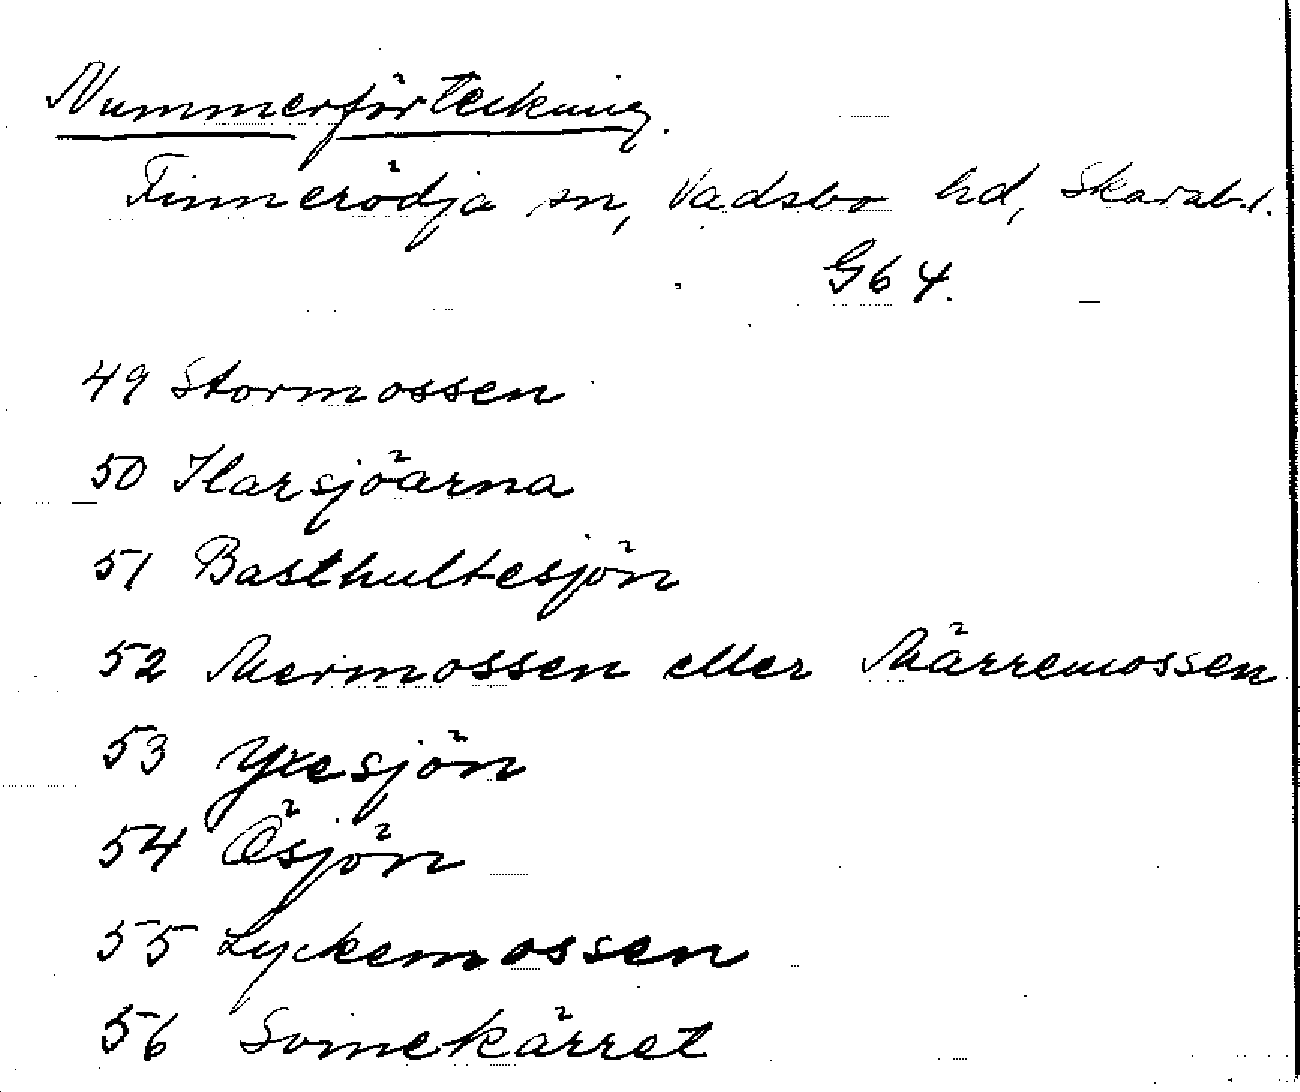 Nummerförteckning.
Finnerödja sn, Vadsbo hd, Skarab. l.
G64.
49 Stormossen
50 Ilarsjöarna
51 Basthultesjön
52 Mermossen eller Märremossen
53 Yxesjön
54 Ösjön
55 Lyckemossen
56 Svinekärret